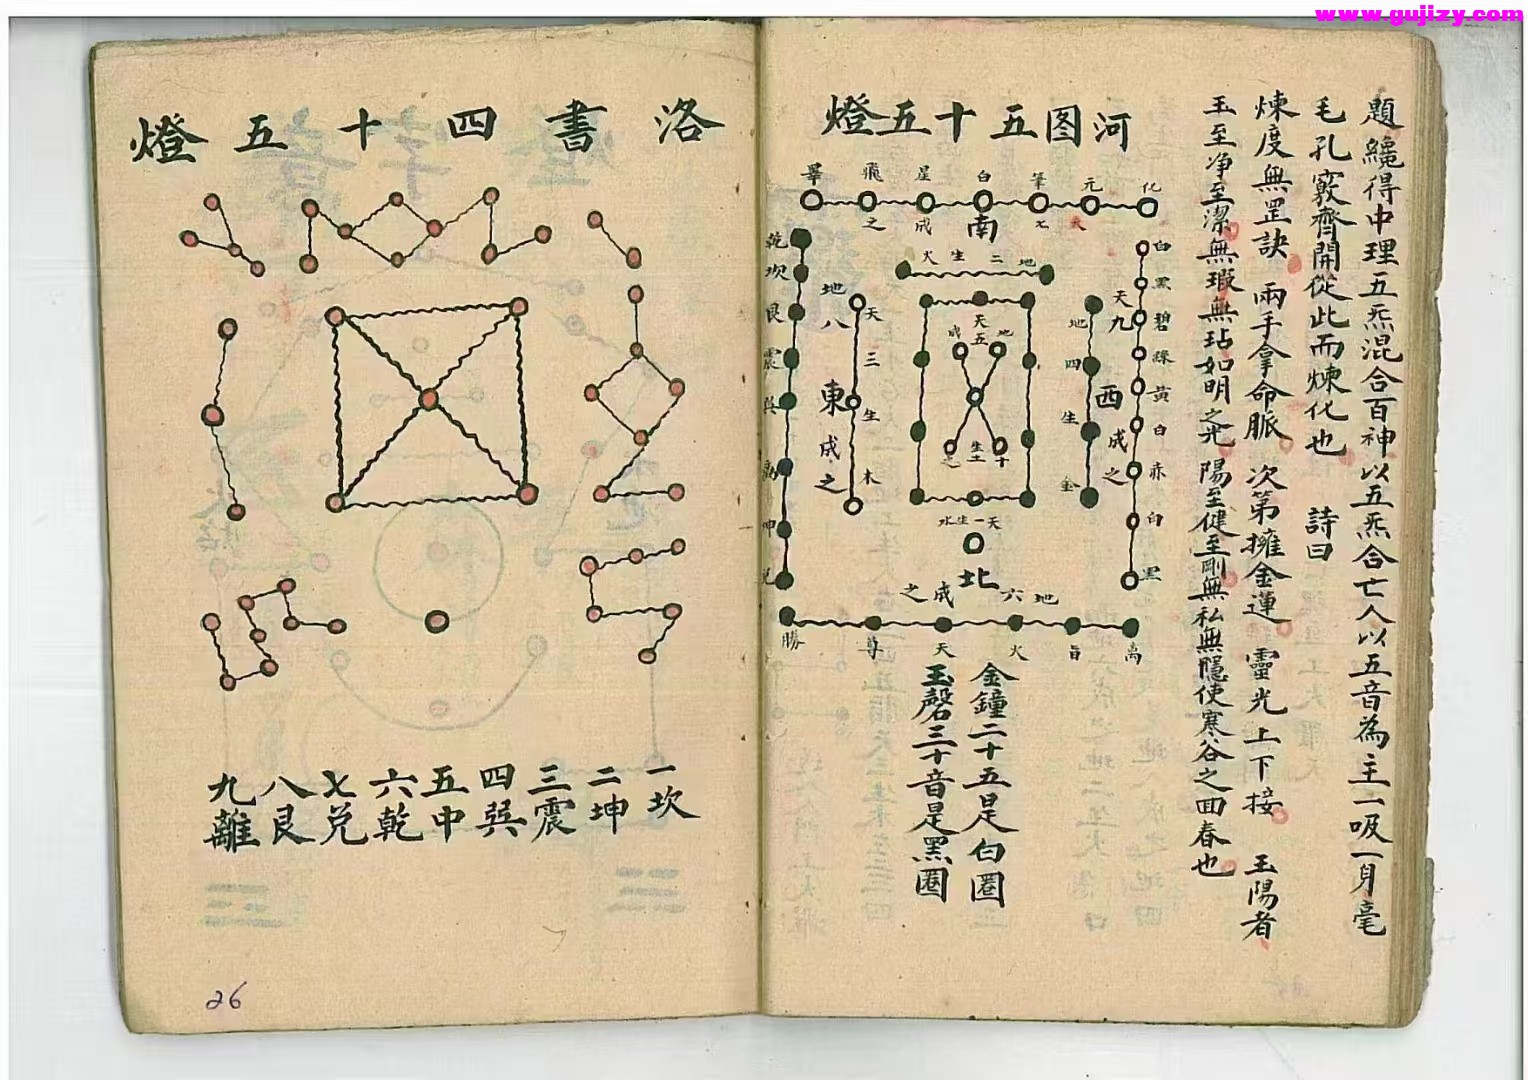 www.gujizy.com
題纔得中理五炁混合百神以五炁合亡人以五音為主一吸一身毫
毛孔竅齊開從此而煉化也　詩曰
煉度無罡訣　兩手拿命脈　次第擁金蓮　靈光上下接　玉陽者
玉至净至潔無瑕無玷如明之光　陽至健至剛無私無隱使寒谷之回春也
河图五十五燈
畢飛星白筆元化
之成南七天
地二生火
乾坎艮震巽离坤兑
地八
東成之
天三生木
天五生土
地十成之
地四生金
天九
西成之
白黑碧綠黃白赤白黑
天一生水
北
地六成之
勝尊天火旨萬
金鐘二十五是白圈
玉磬三十音是黑圈
洛書四十五燈
一坎
二坤
三震
四巽
五中
六乾
七兑
八艮
九離
26